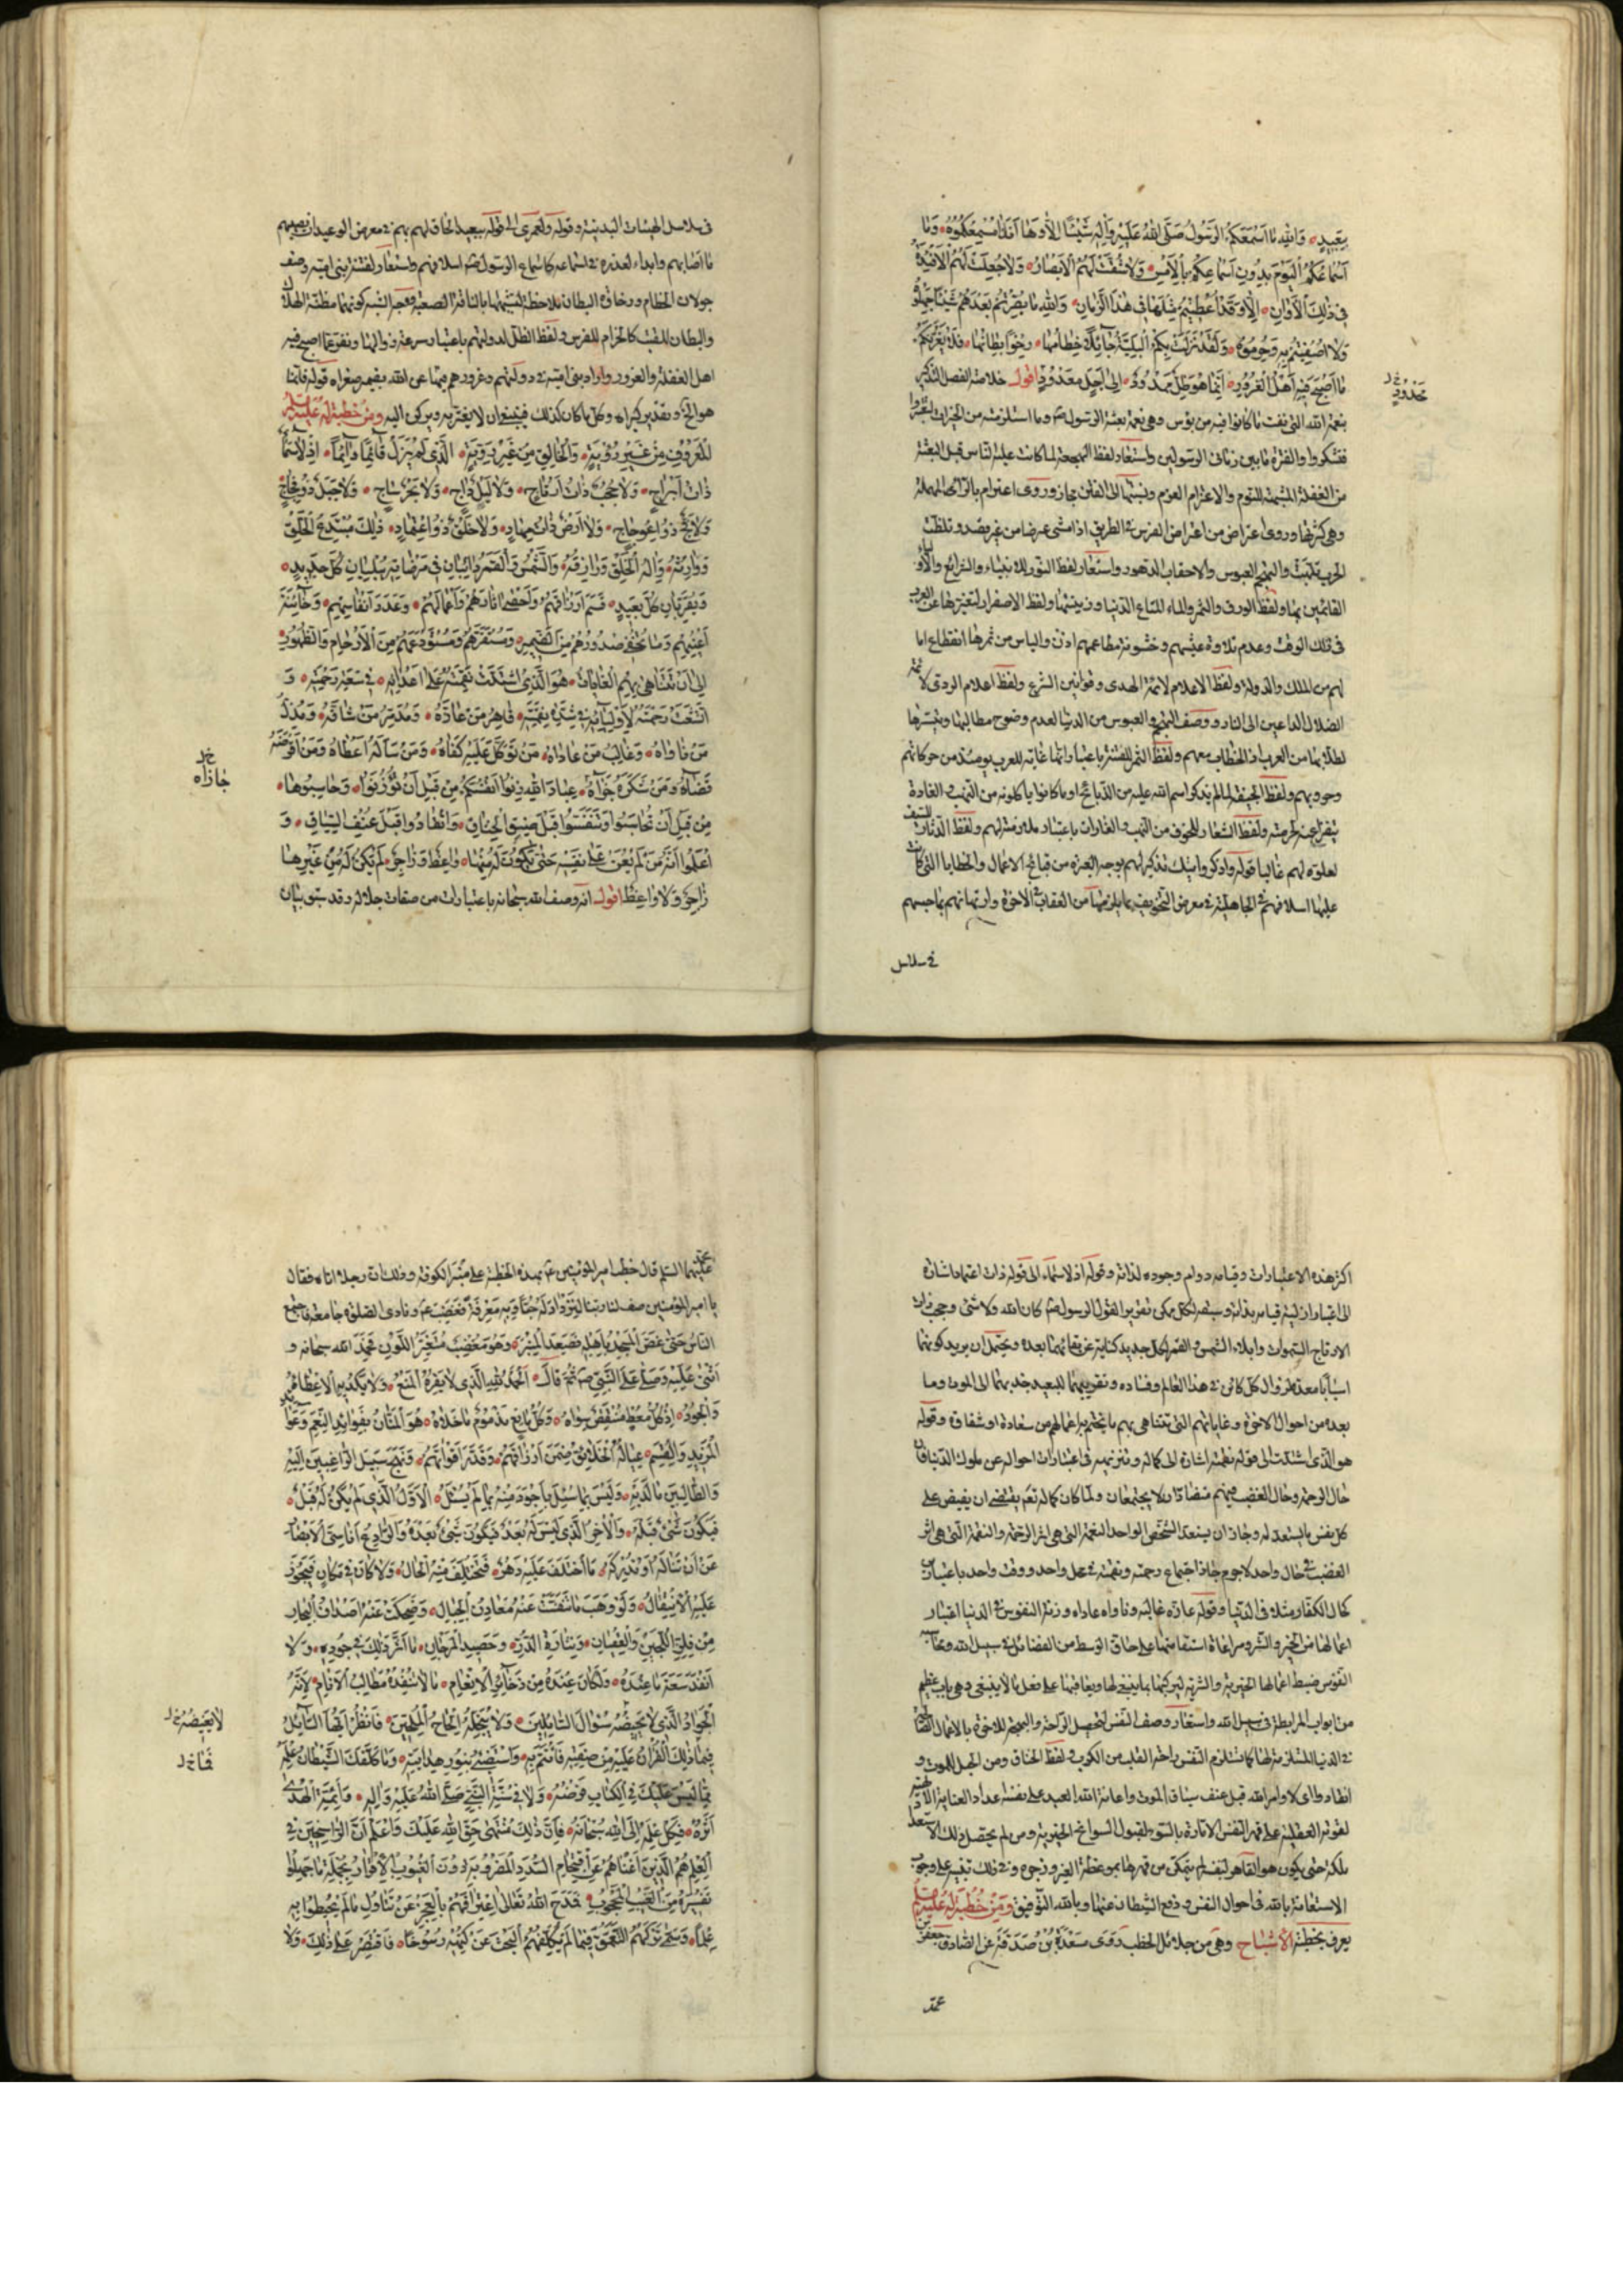 بِبَعِيدٍ وَاللهِ مَا اَسْمَعَكُمُ الرَّسُولُ صَلَّى اللهُ عَلَيْهِ وَاٰلِهِ شَيْئًا اِلَّا وَهَا اَنَا ذَا مُسْمِعُكُمُوهُ وَمَا
اَسْمَاعُكُمُ الْيَوْمَ بِدُونِ اَسْمَاعِكُمْ بِالْاَمْسِ وَلَا شُقَّتْ لَهُمُ الْاَبْصَارُ وَلَا جُعِلَتْ لَهُمُ الْاَفْئِدَةُ
فِي ذٰلِكَ الْاَوَانِ اِلَّا وَقَدْ اُعْطِيتُمْ مِثْلَهَا فِي هٰذَا الزَّمَانِ وَاللهِ مَا بُصِّرْتُمْ بَعْدَهُمْ شَيْئًا جَهِلُوهُ
وَلَا اُصْفِيتُمْ بِهِ وَحُرِمُوهُ وَلَقَدْ نَزَلَتْ بِكُمُ الْبَلِيَّةُ جَائِلًا خِطَامُهَا رِخْوًا بِطَانُهَا فَلَا يَغُرَّنَّكُمْ
مَا اَصْبَحَ فِيهِ اَهْلُ الْغُرُورِ اِنَّمَا هُوَ ظِلٌّ مَمْدُودٌ اِلَى اَجَلٍ مَعْدُودٍ اقول خلاصة الفصل التذكير
بنعمة الله التى نفت ما كانوا فيه من بؤس وهى نعمة بعثة الرسول ص وما استلزمته من الخيرات ليعتبروا
فيشكروا والفترة ما بين زمانى الرسولين واستعار لفظ الهجعة لما كانت عليه الناس قبل البعثة
من الغفلة المشبهة للنوم والاعتزام العزم ونسبتها الى الفتن مجاز وروى اعترام بالراء المهملة
وهى كثرتها وروى اعتراض من اعتراض الفرس فى الطريق اذا مشى عرضا من غير قصد وتلظت
الحرب تلهبت والتجهم العبوس والاحقاب الدهور واستعار لفظ النور للانبياء والشرائع
القائمين بها ولفظ الورق والثمر والماء لمتاع الدنيا وزينتها ولفظ الاصفرار لتغيرها عن العرب
فى ذلك الوقت وعدم طلاوة عيشهم وخشونة مطاعمهم اذن والياس من ثمرها انقطاع اما
لهم من الملك والدولة ولفظ الاعلام لائمة الهدى وقوانين الشرع ولفظ اعلام الردى لائمة
الضلال الداعين الى النار ووصف التجهم والعبوس من الدنيا لعدم وضوح مطالبها وتيسرها
لطلابها من العرب اذ الخطاب معهم ولفظ الثمر للفتنة باعتبار انها غاية للعرب يومئذ من حركاتهم
وحروبهم ولفظ الجيفة لما لم يذكر اسم الله عليه من الذبائح او ما كانوا ياكلونه من النهب والغارة
ولفظ الشعار للخوف من النهب والغارات باعتبار ملازمته لهم ولفظ الدثار للسيف
لعلوه لهم غالبا قوله واذكروا تيك تذكير لهم بوجه العبرة من قبائح الاعمال والخطايا التى كانت
عليها اسلافهم فى الجاهلية فى معرض التخويف بما يلزمها من العقاب فى الاخرة وارتهانهم بها حبسهم
فى سلاسل
فى سلاسل الهيئات البدنية وقوله ولعمرى الى قوله ببعيد الحاق لهم بهم فى معرض الوعيد ان يصيبهم
ما اصابهم وابداء لعذره فى اسماعه كاسماع الرسول ص اسلافهم واستعار لفتنة بنى امية وصف
جولان الخطام ورخاوة البطان ملاحظة لشبهها بالناقة الصعبة ووجه الشبه كونهما مظنة الهلاك
والبطان للقتب كالحزام للفرس ولفظ الظل لدولتهم باعتبار سرعة زوالها ونفر عما اصبح فيه
اهل الغفلة والغرور واراد بنى امية فى دولتهم وغرورهم بها عن الله بضمير صغراه قوله فانما
هو الخ وتقدير كبراه وكل ما كان كذلك فينبغى ان لا يغتر به ويركن اليه ومن خطبة له عليه السلام
الْمَعْرُوفِ مِنْ غَيْرِ رُؤْيَةٍ وَالْخَالِقِ مِنْ غَيْرِ رَوِيَّةٍ الَّذِى لَمْ يَزَلْ قَائِمًا دَائِمًا اِذْ لَا سَمَاءٌ
ذَاتُ اَبْرَاجٍ وَلَا حُجُبٌ ذَاتُ اَرْتَاجٍ وَلَا لَيْلٌ دَاجٍ وَلَا بَحْرٌ سَاجٍ وَلَا جَبَلٌ ذُو فِجَاجٍ
وَلَا فَجٌّ ذُو اعْوِجَاجٍ وَلَا اَرْضٌ ذَاتُ مِهَادٍ وَلَا خَلْقٌ ذُو اعْتِمَادٍ ذٰلِكَ مُبْتَدِعُ الْخَلْقِ
وَوَارِثُهُ وَاِلٰهُ الْخَلْقِ وَرَازِقُهُ وَالشَّمْسُ وَالْقَمَرُ دَائِبَانِ فِى مَرْضَاتِهِ يُبْلِيَانِ كُلَّ جَدِيدٍ
وَيُقَرِّبَانِ كُلَّ بَعِيدٍ قَسَمَ اَرْزَاقَهُمْ وَاَحْصٰى اٰثَارَهُمْ وَاَعْمَالَهُمْ وَعَدَدَ اَنْفَاسِهِمْ وَخَائِنَةَ
اَعْيُنِهِمْ وَمَا تُخْفِى صُدُورُهُمْ مِنَ الضَّمِيرِ وَمُسْتَقَرَّهُمْ وَمُسْتَوْدَعَهُمْ مِنَ الْاَرْحَامِ وَالظُّهُورِ
اِلٰى اَنْ تَتَنَاهٰى بِهِمُ الْغَايَاتُ هُوَ الَّذِى اشْتَدَّتْ نِقْمَتُهُ عَلٰى اَعْدَائِهِ فِى سَعَةِ رَحْمَتِهِ وَ
اتَّسَعَتْ رَحْمَتُهُ لِاَوْلِيَائِهِ فِى شِدَّةِ نِقْمَتِهِ قَاهِرُ مَنْ عَازَّهُ وَمُدَمِّرُ مَنْ شَاقَّهُ وَمُذِلُّ
مَنْ نَاوَاهُ وَغَالِبُ مَنْ عَادَاهُ مَنْ تَوَكَّلَ عَلَيْهِ كَفَاهُ وَمَنْ سَاَلَهُ اَعْطَاهُ وَمَنْ اَقْرَضَهُ
قَضَاهُ وَمَنْ شَكَرَهُ جَزَاهُ عِبَادَ اللهِ زِنُوا اَنْفُسَكُمْ مِنْ قَبْلِ اَنْ تُوزَنُوا وَحَاسِبُوهَا
مِنْ قَبْلِ اَنْ تُحَاسَبُوا وَتَنَفَّسُوا قَبْلَ ضِيقِ الْخِنَاقِ وَانْقَادُوا قَبْلَ عُنْفِ السِّيَاقِ وَ
اعْلَمُوا اَنَّهُ مَنْ لَمْ يُعَنْ عَلٰى نَفْسِهِ حَتّٰى يَكُونَ لَهُ مِنْهَا وَاعِظٌ وَزَاجِرٌ لَمْ يَكُنْ لَهُ مِنْ غَيْرِهَا
زَاجِرٌ وَلَا وَاعِظٌ اقول انه وصف الله سبحانه باعتبارات من صفات جلاله وقد سبق بيان
جازاه
اكثر هذه الاعتبارات وقيامه دوام وجوده لذاته وقوله اذ لا سماء الى قوله ذات اعتماد اشارة
الى اعتبار ازلية قيامه بذاته وسبقه لكل ممكن تقرير القول الرسول ص كان الله ولا شئ وحجب ذات
الارتاج السموات وابلاء الشمس والقمر لكل جديد كناية عن بقائهما بعده ويحتمل ان يريد كونهما
اسبابا معدة لزوال كل كائن فى هذا العالم وفساده وتقريبهما للبعيد جذبهما الى الموت وما
بعده من احوال الاخرة وغاياتهم التى تتناهى بهم ما يختم به اعمالهم من سعادة او شقاوة وقوله
هو الذى اشتدت الى قوله نقمته اشارة الى كماله وتنزيهه فى اعتبارات احواله عن ملوك الدنيا فان
حال الرحمة وحال الغضب فيهم متضادان لا يجتمعان ولما كان كماله تعالى يقتضى ان يفيض على
كل نفس ما يستعد له وجاز ان يستعد الشخص الواحد النعمة التى هى اثر الرحمة والنقمة التى هى اثر
الغضب فى حال واحد لا جرم جاز اجتماع رحمته ونقمته فى محل واحد ووقت واحد باعتبارين
كحال الكفار مثلا فى الدنيا وقوله عازه غالبه وناواه عاداه وزنة النفوس فى الدنيا اعتبار
اعمالها من الخير والشر ومراعاة استقامتها على حاق الوسط من الفضائل فى سبيل الله ومحاسبة
النفوس ضبط اعمالها الخيرية والشرية ليزكيها بما ينبغى لها ويعاقبها على فعل ما لا ينبغى وهى باب عظيم
من ابواب المرابطة فى سبيل الله واستعار وصف النفس لتحصيل الراحة والبهجة للاخرة بالاعمال الصالحة
فى الدنيا المستلزمة لها كما تستلزم النفس راحة القلب من الكرب ولفظ الخناق ومن الحبل للموت و
انقادوا الى لاوامر الله قبل عنف سياق الموت واعانة الله للعبد على نفسه اعداد العناية الالهية
لقوته العقلية على قهر النفس الامارة بالسوء لقبول السوانح الخيرية ومن لم يحصل ذلك الاستعداد
ملكة حتى يكون هو القاهر لنفسه لم يتمكن من قهرها بموعظة الغير وزجره وفى ذلك تنبيه على وجوب
الاستعانة بالله فى احوال النفس ودفع الشيطان عنها وبالله التوفيق ومن خطبة له عليه السلام
يعرف بخطبة الاشباح وهى من جلائل الخطب روى مسعدة بن صدقة عن الصادق جعفر بن
محمد
محمد عليهما السلم قال خطب امير المؤمنين ع بهذه الخطبة على منبر الكوفة وذلك ان رجلا اتاه فقال
يا امير المؤمنين صف لنا ربنا لنزداد له حبا وبه معرفة فغضب ع ونادى الصلوة جامعة فاجتمع
النَّاسُ حَتّٰى غَصَّ الْمَسْجِدُ بِاَهْلِهِ فَصَعِدَ الْمِنْبَرَ وَهُوَ مُغْضَبٌ مُتَغَيِّرُ اللَّوْنِ فَحَمِدَ اللهَ سبحانه و
اَثْنٰى عَلَيْهِ وَصَلّٰى عَلَى النَّبِيِّ ص ثُمَّ قَالَ اَلْحَمْدُ لِلّٰهِ الَّذِى لَا يَفِرُهُ الْمَنْعُ وَلَا يُكْدِيهِ الْاِعْطَاءُ
وَالْجُودُ اِذْ كُلُّ مُعْطٍ مُنْتَقِصٌ سِوَاهُ وَكُلُّ مَانِعٍ مَذْمُومٌ مَا خَلَاهُ هُوَ الْمَنَّانُ بِفَوَائِدِ النِّعَمِ وَعَوَائِدِ
الْمَزِيدِ وَالْقِسَمِ عِيَالُهُ الْخَلَائِقُ ضَمِنَ اَرْزَاقَهُمْ وَقَدَّرَ اَقْوَاتَهُمْ وَنَهَجَ سَبِيلَ الرَّاغِبِينَ اِلَيْهِ
وَالطَّالِبِينَ مَا لَدَيْهِ وَلَيْسَ بِمَا سُئِلَ بِاَجْوَدَ مِنْهُ بِمَا لَمْ يُسْئَلْ الْاَوَّلُ الَّذِى لَمْ يَكُنْ لَهُ قَبْلٌ
فَيَكُونَ شَىْءٌ قَبْلَهُ وَالْاٰخِرُ الَّذِى لَيْسَ لَهُ بَعْدٌ فَيَكُونَ شَىْءٌ بَعْدَهُ وَالرَّادِعُ اَنَاسِىَّ الْاَبْصَارِ
عَنْ اَنْ تَنَالَهُ اَوْ تُدْرِكَهُ مَا اخْتَلَفَ عَلَيْهِ دَهْرٌ فَتَخْتَلِفَ مِنْهُ الْحَالُ وَلَا كَانَ فِى مَكَانٍ فَيَجُوزَ
عَلَيْهِ الْاِنْتِقَالُ وَلَوْ وَهَبَ مَا تَنَفَّسَتْ عَنْهُ مَعَادِنُ الْجِبَالِ وَضَحِكَتْ عَنْهُ اَصْدَافُ الْبِحَارِ
مِنْ فِلِزِّ اللُّجَيْنِ وَالْعِقْيَانِ وَنُثَارَةِ الدُّرِّ وَحَصِيدِ الْمَرْجَانِ مَا اَثَّرَ ذٰلِكَ فِى جُودِهِ وَلَا
اَنْفَدَ سَعَةَ مَا عِنْدَهُ وَلَكَانَ عِنْدَهُ مِنْ ذَخَائِرِ الْاِنْعَامِ مَا لَا تُنْفِدُهُ مَطَالِبُ الْاَنَامِ لِاَنَّهُ
الْجَوَادُ الَّذِى لَا يَغِيضُهُ سُؤَالُ السَّائِلِينَ وَلَا يُبَخِّلُهُ اِلْحَاحُ الْمُلِحِّينَ فَانْظُرْ اَيُّهَا السَّائِلُ
فَمَا دَلَّكَ الْقُرْاٰنُ عَلَيْهِ مِنْ صِفَتِهِ فَائْتَمَّ بِهِ وَاسْتَضِئْ بِنُورِ هِدَايَتِهِ وَمَا كَلَّفَكَ الشَّيْطَانُ عِلْمَهُ
مِمَّا لَيْسَ عَلَيْكَ فِى الْكِتَابِ فَرْضُهُ وَلَا فِى سُنَّةِ النَّبِيِّ صَلَّى اللهُ عَلَيْهِ وَاٰلِهِ وَاَئِمَّةِ الْهُدٰى
اَثَرُهُ فَكِلْ عِلْمَهُ اِلَى اللهِ سُبْحَانَهُ فَاِنَّ ذٰلِكَ مُنْتَهٰى حَقِّ اللهِ عَلَيْكَ وَاعْلَمْ اَنَّ الرَّاسِخِينَ فِى
الْعِلْمِ هُمُ الَّذِينَ اَغْنَاهُمْ عَنِ اقْتِحَامِ السُّدَدِ الْمَضْرُوبَةِ دُونَ الْغُيُوبِ الْاِقْرَارُ بِجُمْلَةِ مَا جَهِلُوا
تَفْسِيرَهُ مِنَ الْغَيْبِ الْمَحْجُوبِ فَمَدَحَ اللهُ تَعَالٰى اعْتِرَافَهُمْ بِالْعَجْزِ عَنْ تَنَاوُلِ مَا لَمْ يُحِيطُوا بِهِ
عِلْمًا وَسَمّٰى تَرْكَهُمُ التَّعَمُّقَ فِيمَا لَمْ يُكَلِّفْهُمُ الْبَحْثَ عَنْ كُنْهِهِ رُسُوخًا فَاقْتَصِرْ عَلٰى ذٰلِكَ وَلَا